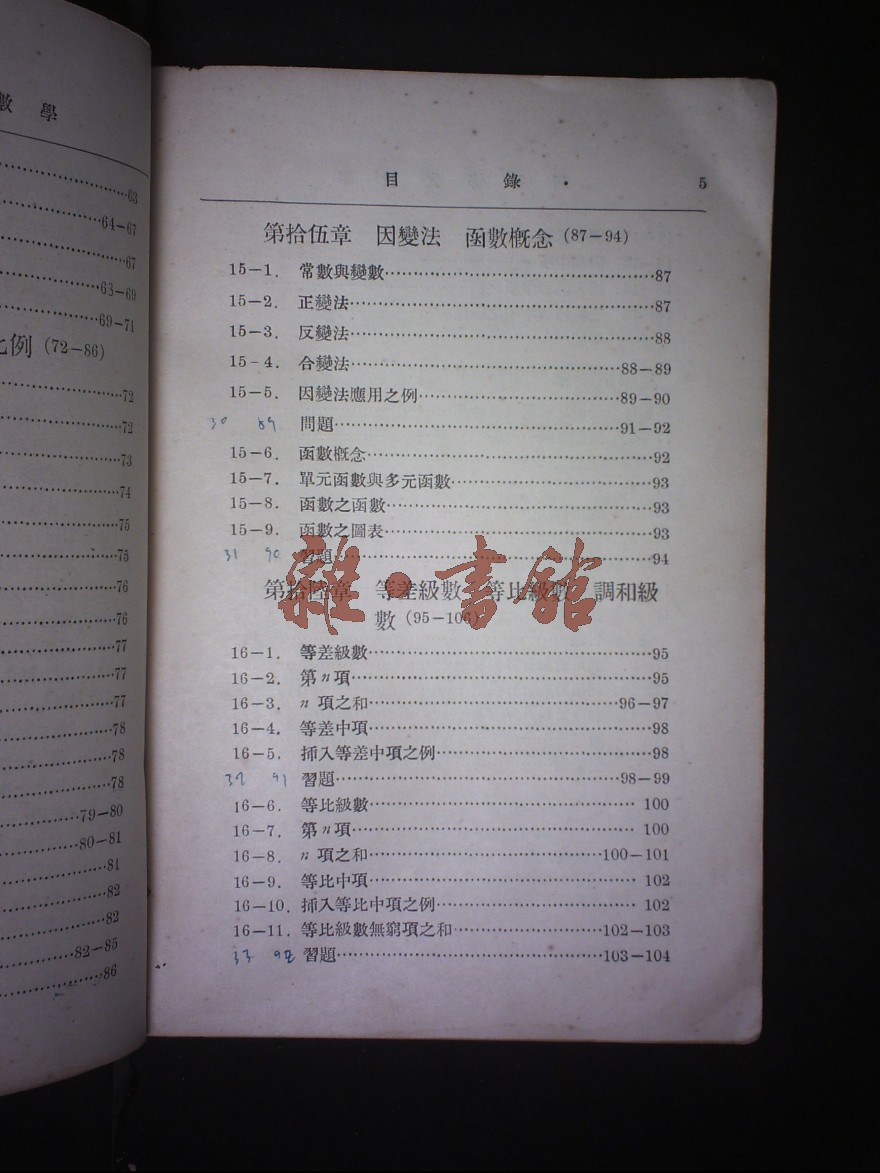 數學
63
64—67
67
63—69
69—71
比例 (72—86)
72
72
73
74
75
75
76
76
77
77
77
78
78
78
79—80
80—81
81
82
82
82—85
86
目 錄 5
第拾伍章 因變法 函數概念 (87—94)
15—1. 常數與變數……87
15—2. 正變法……87
15—3. 反變法……88
15-4. 合變法……88—89
15—5. 因變法應用之例……89—90
30 89 問題……91—92
15—6. 函數概念……92
15—7. 單元函數與多元函數……93
15—8. 函數之函數……93
15—9. 函數之圖表……93
31 90 習題……94
雜·書館
第拾陸章 等差級數 等比級數 調和級
數 (95—106)
16—1. 等差級數……95
16—2. 第n項……95
16—3. n 項之和……96—97
16—4. 等差中項……98
16—5. 挿入等差中項之例……98
32 91 習題……98—99
16—6. 等比級數……100
16—7. 第n項……100
16—8. n 項之和……100—101
16—9. 等比中項……102
16—10. 挿入等比中項之例……102
16—11. 等比級數無窮項之和……102—103
33 92 習題……103—104